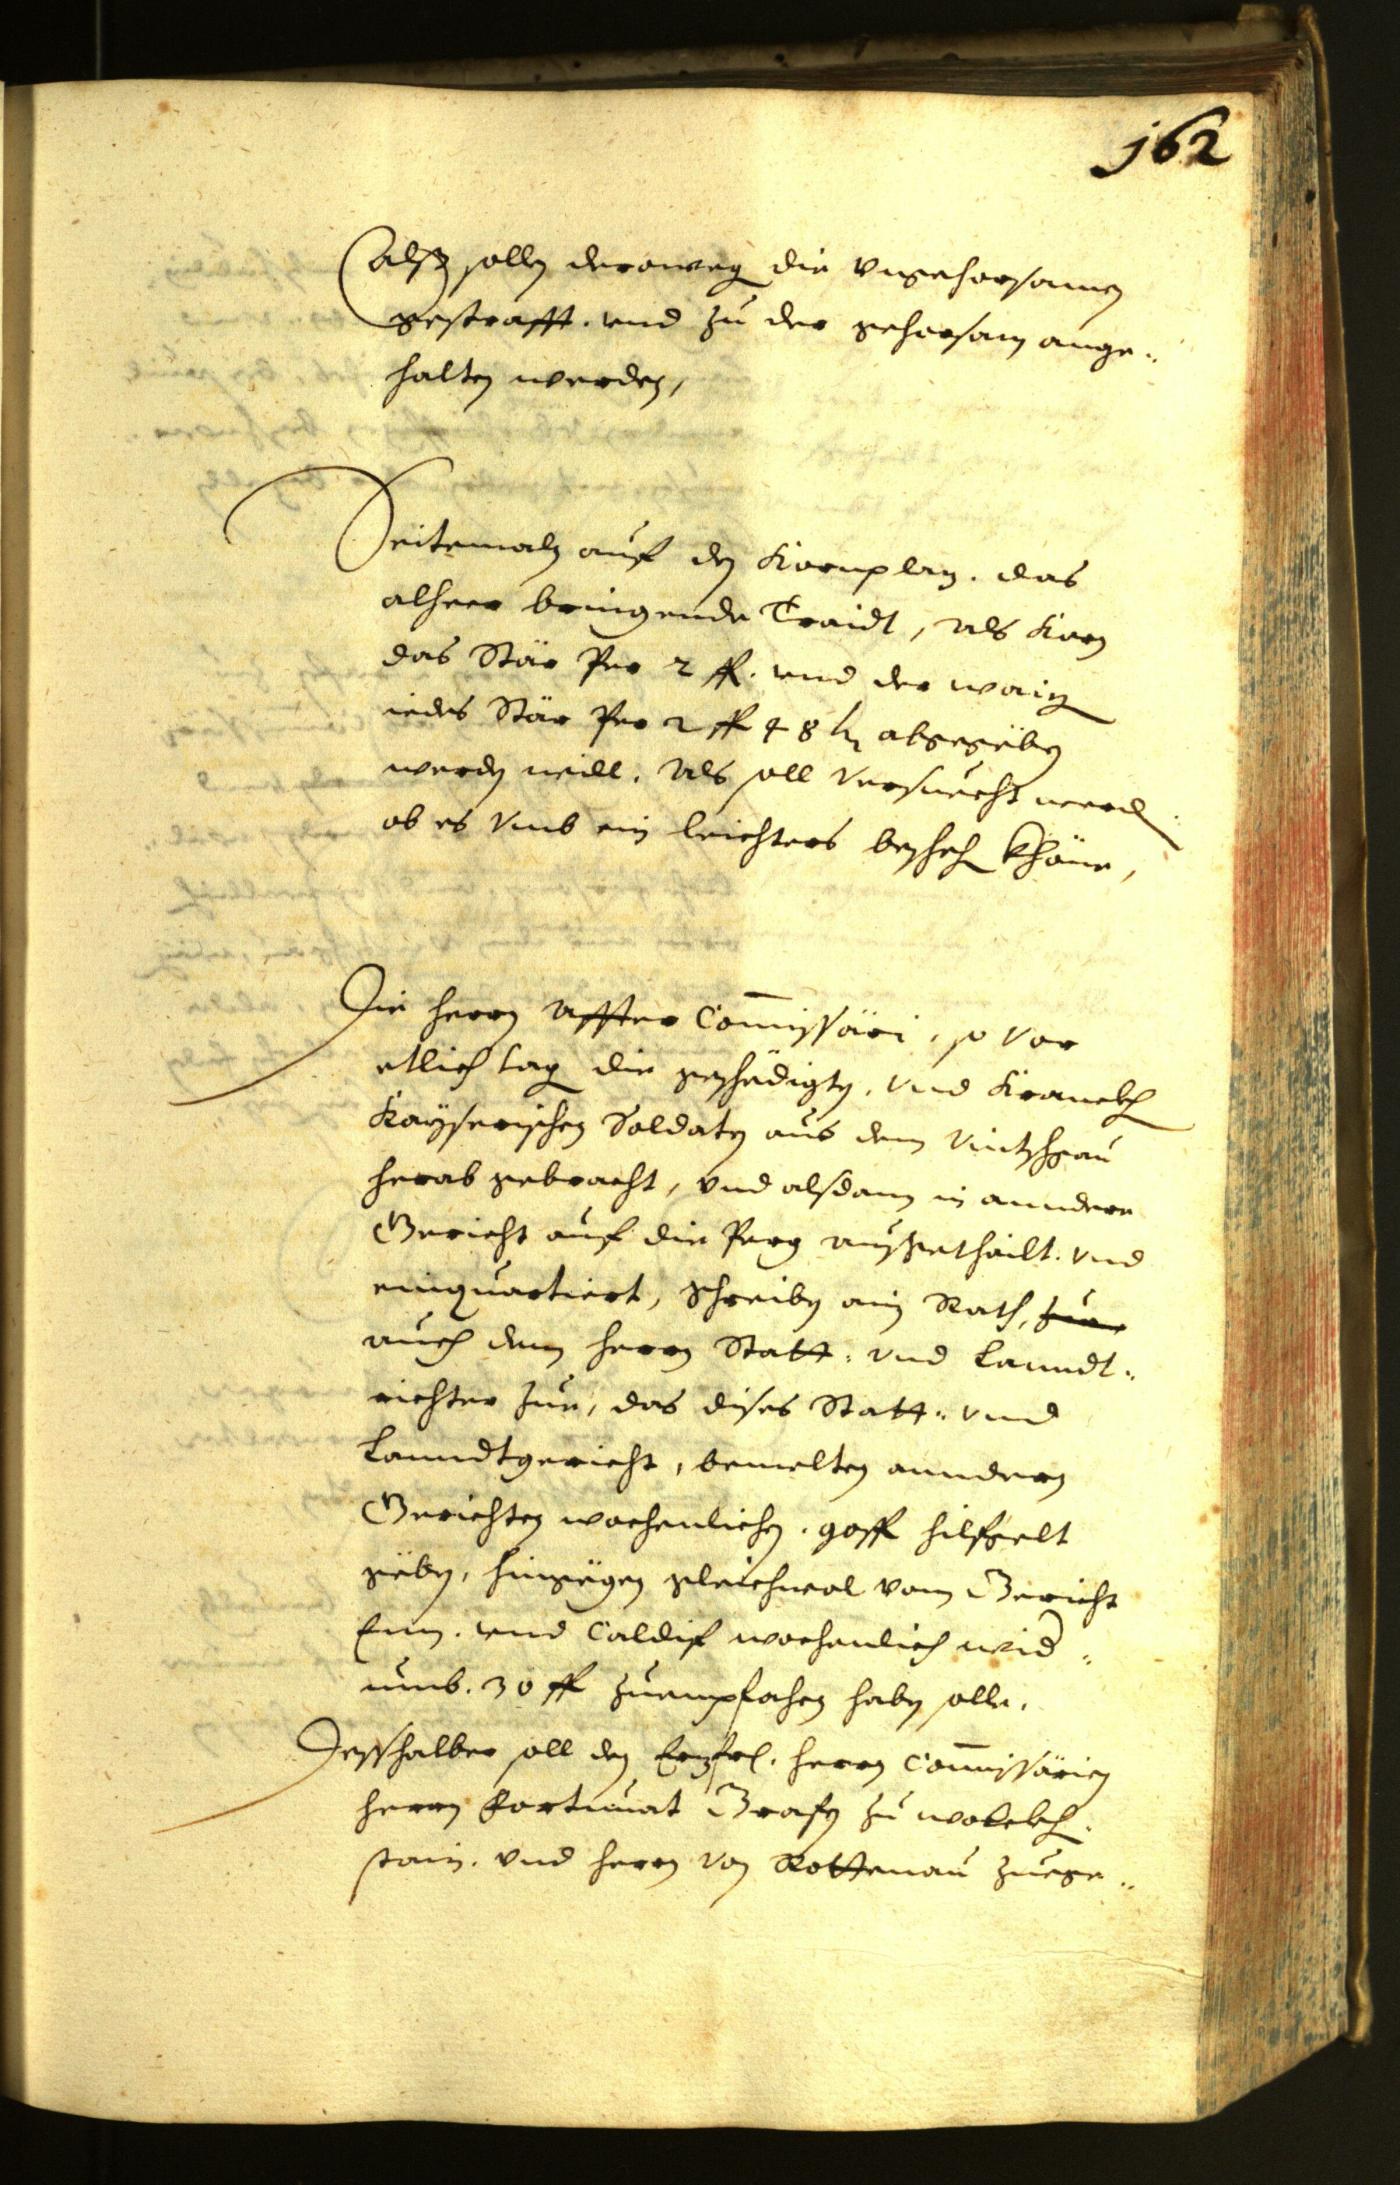 162
Alß sollen derowegen die Vngehorsamen
gestrafft. vnd zu der gehorsam ange-
halten werden,
Seitemaln auf den Kornplaz. das
alheer bringende Traidt, als Korn
das Stär Per 2 fl. vnd der waiz
iedes Stär Per 2 fl 48 kr abgegeben
werden will. Als soll Versuecht werden
ob es Vmb ein leichters beschehen khöne,
Die herrn Commissäri, so Vor
etlich tag die geschedigten, vnd Krancken
Kayserischen Soldaten aus dem Vintschgau
herab gebracht, vnd alsdann in anndere
Gericht auf die Perg außgethailt. vnd
einquartiert, Schreiben ain Rath, zue
auch dem herrn Statt- vnd Lanndt-
richter zue, das dises Statt- vnd
Lanndtgericht, bemelten anndern
Gerichten wochenlichen. 90 fl hilfgelt
geben, hingegen gleichwol vom Gericht
Enn. vnd Caldif wochenlich wid-
umb. 30 fl zuempfahen haben solle.
Desshalber soll den herrn Commissärien
herrn Fortunat Grafen zu wolcken-
stain. vnd herrn Von Rottenau zuege-